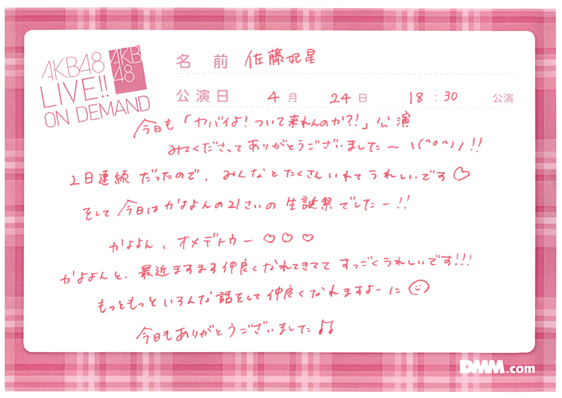 AKB48
LIVE!!
ON DEMAND
AKB
48
名前 佐藤妃星
公演日 4月 24日 18:30 公演
今日も「ヤバイよ!ついて来れんのか?!」公演
みてくださってありがとうございました〜\(^o^)/!!
2日連続だったので、みんなとたくさんいれてうれしいです♡
そして今日はかよよんの21さいの生誕祭でしたー!!
かよよん、オメデトウー♡♡♡
かよよんと、最近ますます仲良くなれてきててすっごくうれしいです!!!
もっともっといろんな話をして仲良くなれますよーに☺
今日もありがとうございました♪♪
DMM.com